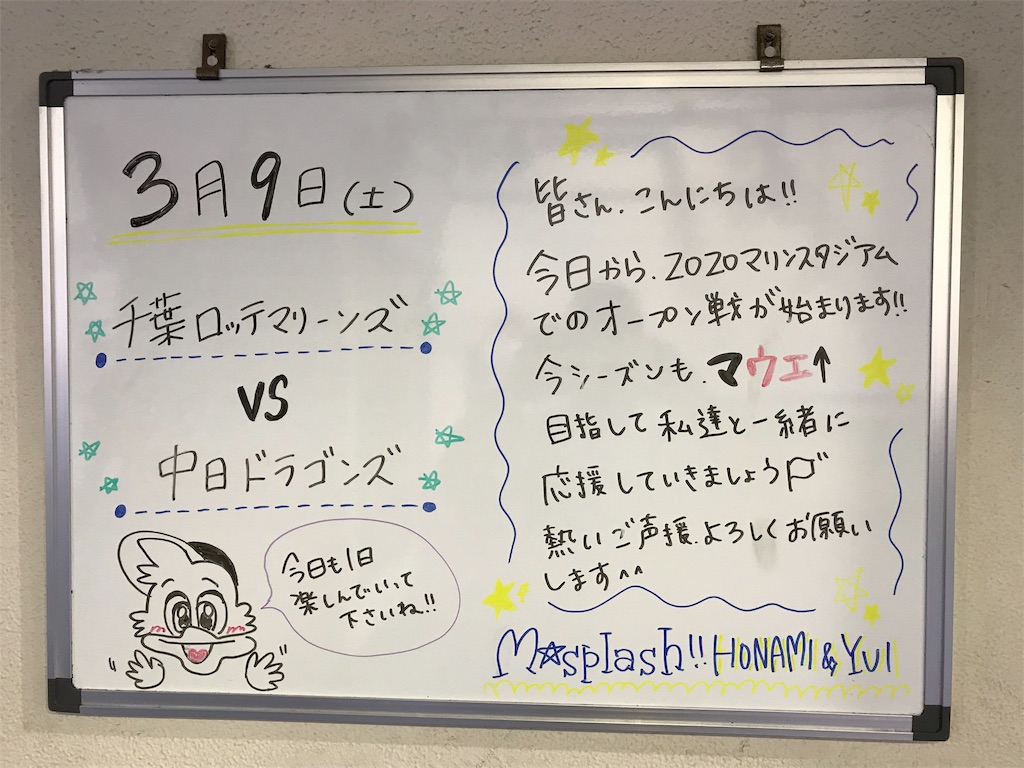 3月9日(土)
千葉ロッテマリーンズ
VS
中日ドラゴンズ
今日も1日
楽しんでいって
下さいね!!
皆さん、こんにちは!!
今日から、2020マリンスタジアム
でのオープン戦が始まります!!
今シーズンも、マウエ↑
目指して私達と一緒に
応援していきましょう
熱いご声援、よろしくお願い
します^^
M☆splash!! HONAMI & YUI